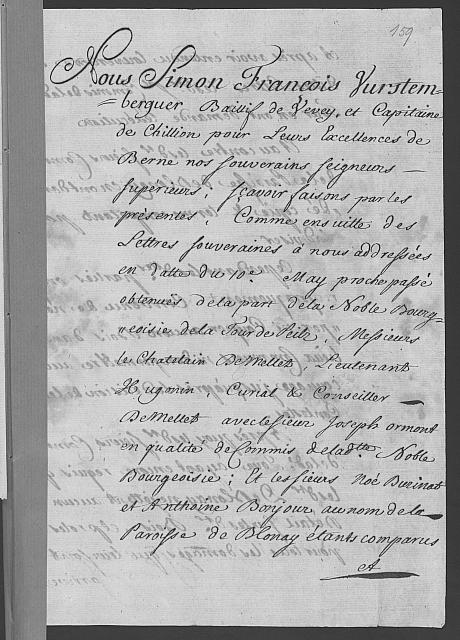 159
Nous Simon Francois Vurstem=
=berguer Baillif de Vevey, et Capitaine
de Chillion pour Leurs Excellences de
Berne nos souverains seigneurs —
superieurs, sçavoir faisons par les
présentes, Comme ensuitte des
Lettres souveraines à nous addressées
en datte du 10e May proche passé
obtenües de la part de la Noble Bourg=
=eoisie de la Tour de Peilz, Messieurs
les Chatelain DeMellet, Lieutenant
Hugonin, Curial & Conseiller —
DeMellet avec le sieur Joseph Ormont
en qualité de Commis de lad.tte Noble
Bourgeoisie; Et les sieurs Noé Burinat
et Anthoine Bonjour au nom de la —
Paroisse de Blonay étants comparus
A